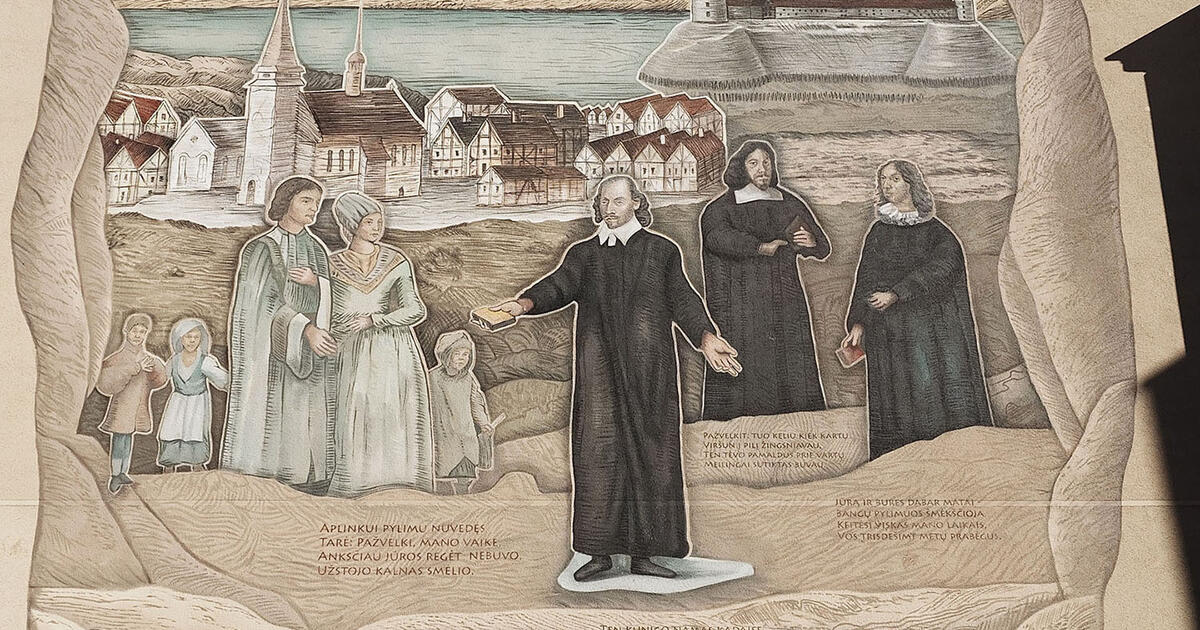 PAŽVELKIT: TUO KELIU KIEK KARTŲ
VIRŠUN Į PILĮ ŽINGSNIAVAU,
TEN TĖVO PAMALDUS PRIE VARTŲ
MEILINGAI SUTIKTAS BUVAU.
JŪRĄ IR BURES DABAR MATAI -
BANGŲ PYLIMUOS ŠMĖKŠČIOJA
KEITĖSI VISKAS MANO LAIKAIS,
VOS TRISDEŠIMT METŲ PRABĖGUS.
APLINKUI PYLIMU NUVEDĘS
TARĖ: PAŽVELKI, MANO VAIKE,
ANKSČIAU JŪROS REGĖT NEBUVO,
UŽSTOJO KALNAS SMĖLIO.
TEN KUNIGO NAMAS KADAISE